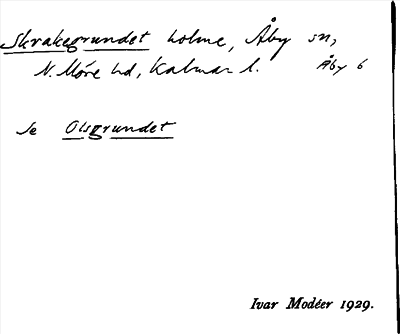 Skrakegrundet holme, Åby sn,
N. Möre hd, Kalmar l. Åby 6
Se Olsgrundet
Ivar Modéer 1929.